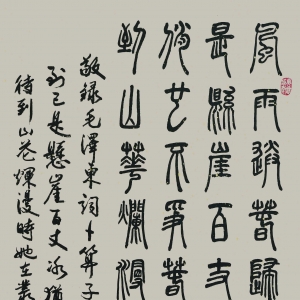 風雨送春歸
是懸崖百丈
俏也不爭春
到山花爛漫
敬錄毛澤東詞卜算子
到已是懸崖百丈冰猶
待到山花爛漫時她在叢